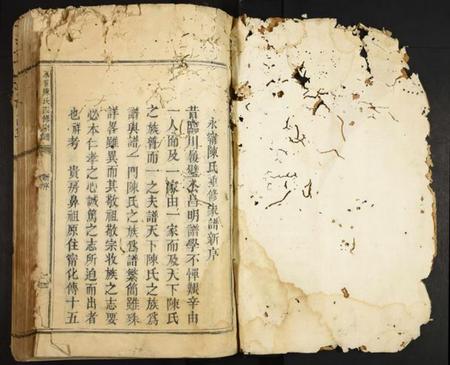 永甯陳氏重修家譜新序
昔臨川嶺壁永昌明譜學不憚艱辛由
一人而及一家由一家而及天下陳氏
之族胥而一之夫譜天下陳氏之族爲
譜與譜一門陳氏之族爲譜繁簡雖殊
詳畧雖異而其敬祖敬宗收族之志要
必本仁孝之心誠篤之志所迫而出者
也爾考 貴房鼻祖原住甯化傳十五
陳氏四修宗譜